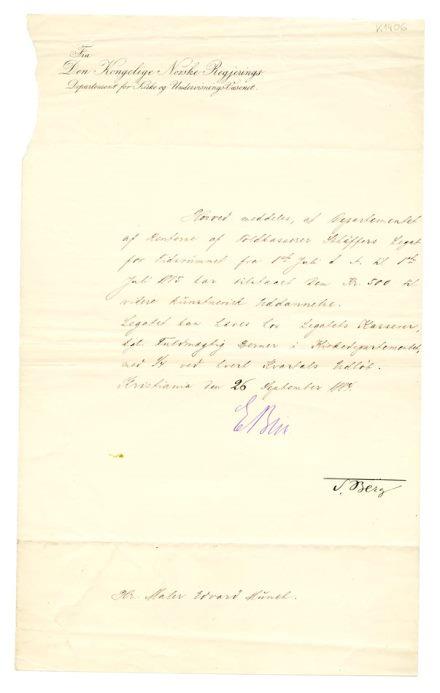 K1906
Fra
Den Kongelige Norske Regjerings
Departement for Kirke og Undervisnings-Væsenet.
Herved meddeles, at Departementet
af Renterne af Toldkasserer Schäffers Legat
for Tidsrummet fra 1ste Juli d. A. til 1ste
Juli har Dem Kr. 500 til
videre kunstnerisk Uddannelse.
Legatet kan hæves hos Legatets Kasserer,
Fuldmægtig Berner i Kirkedepartementet,
med ¼ ved hvert Kvartals Udløb.
Kristiania den 26 September
S. Berg
Hr. Maler Edvard Munch.